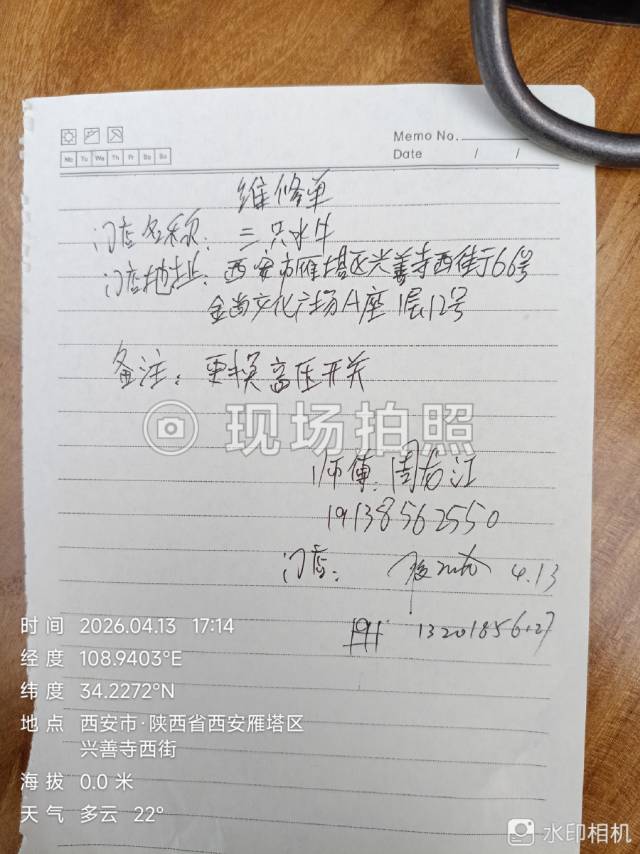 Memo No.
Mo Tu We Th Fr Sa Su
Date / /
维修单
门店名称：三只水牛
门店地址：西安市雁塔区兴善寺西街66号
金尚文化广场A座1层12号
备注：更换高压开关
现场拍照
师傅：周右江
19138562550
门店： 4.13
时间 2026.04.13 17:14
经度 108.9403°E
纬度 34.2272°N
地点 西安市·陕西省西安雁塔区
兴善寺西街
海拔 0.0 米
天气 多云 22°
水印相机